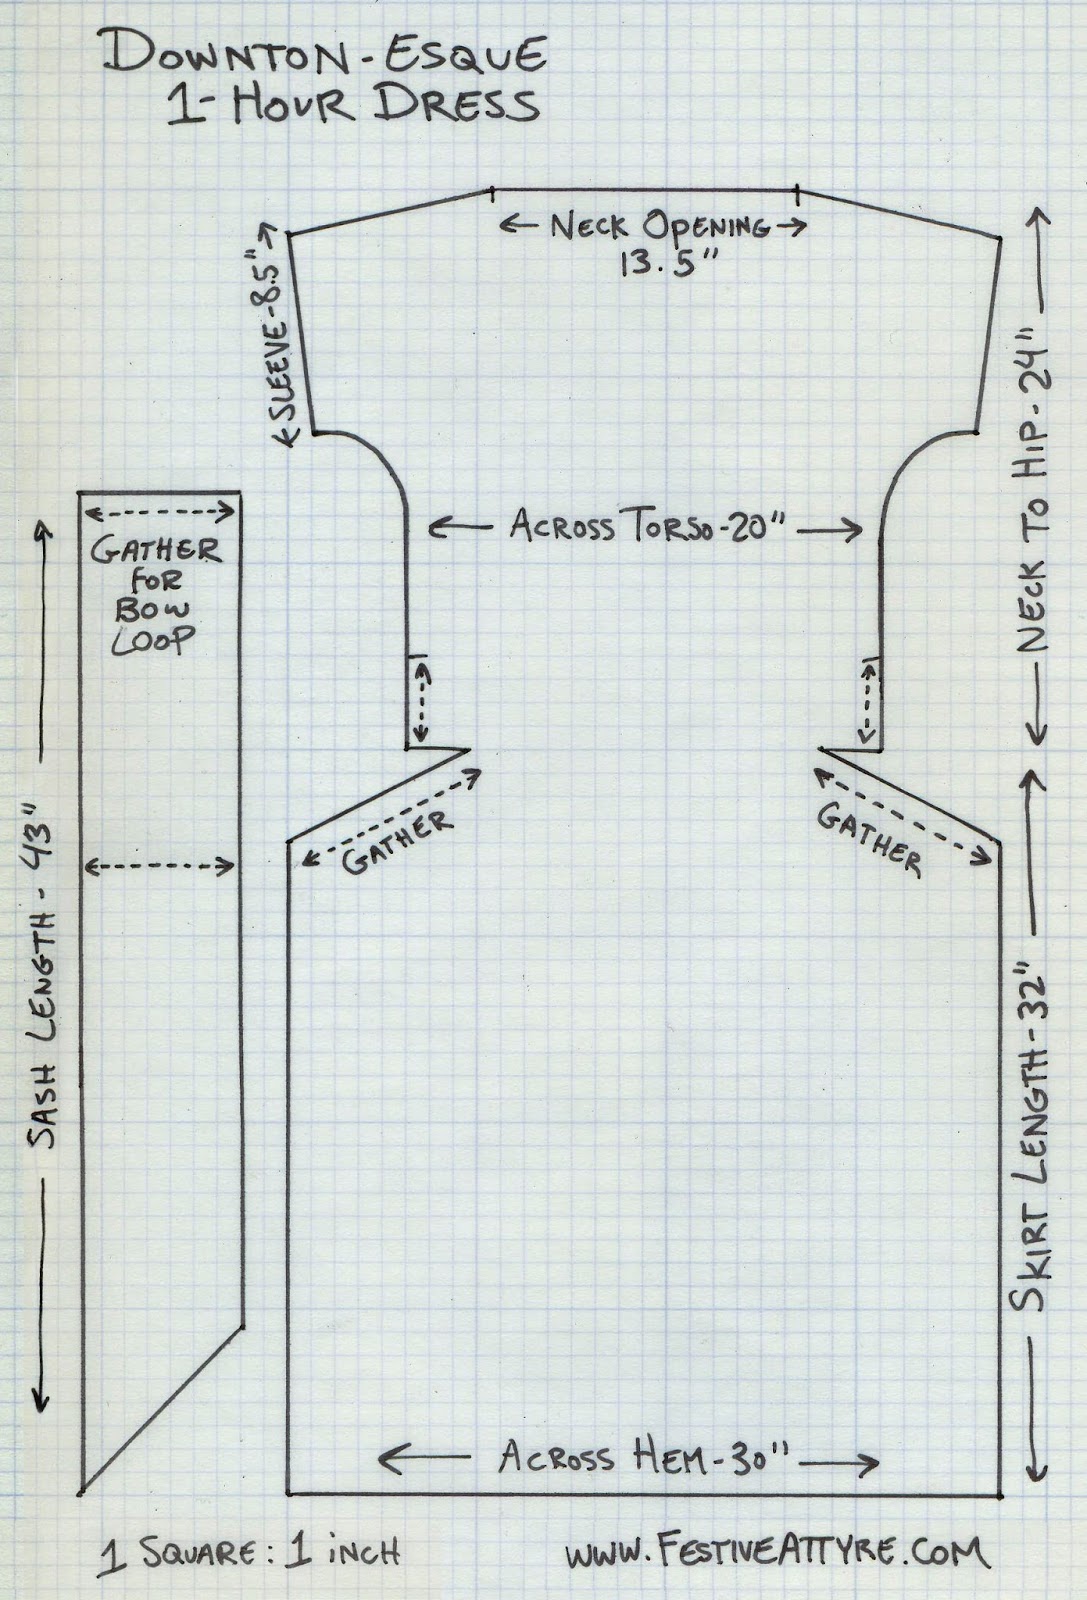 DOWNTON-ESQUE
1-HOUR DRESS
NECK OPENING
13.5"
SLEEVE-8.5"
NECK TO HIP-24"
ACROSS TORSO-20"
GATHER
FOR
BOW
LOOP
GATHER
GATHER
SASH LENGTH-43"
SKIRT LENGTH-32"
ACROSS HEM-30"
1 SQUARE: 1 INCH
WWW.FESTIVEATTYRE.COM